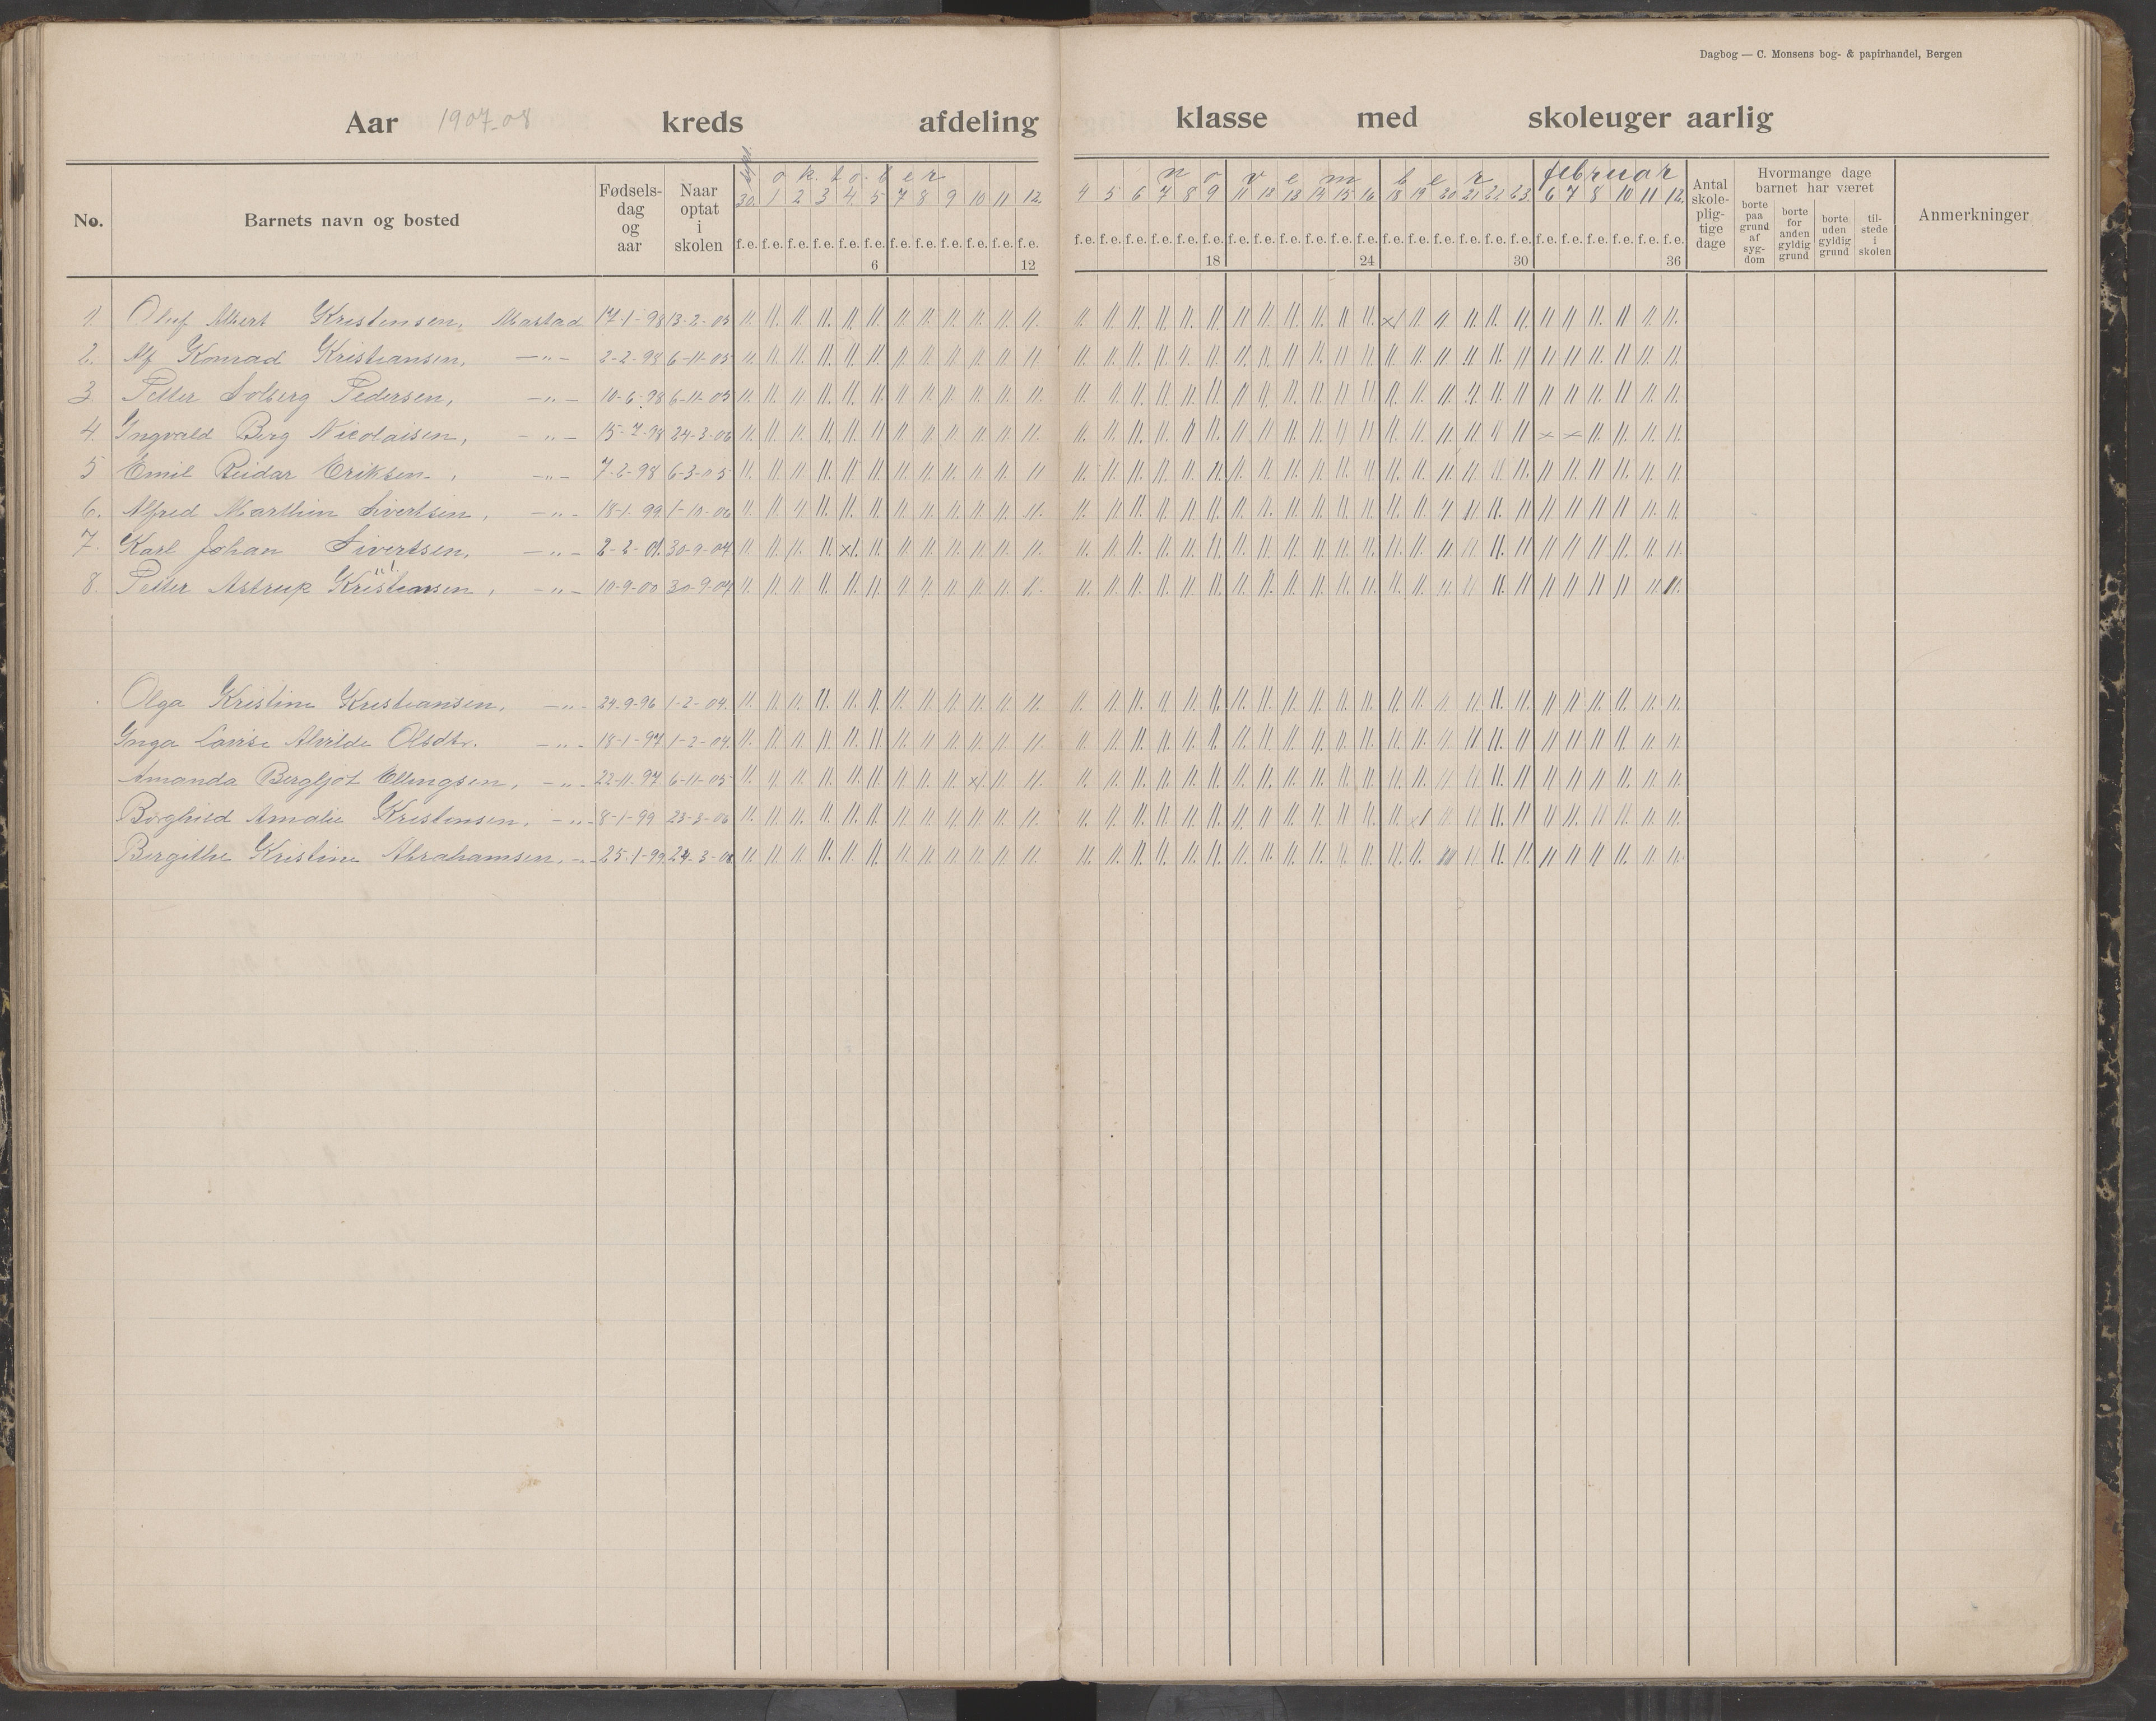 Dagbog — C. Monsens bog- & papirhandel, Bergen
Aar 1907-08 kreds afdeling klasse med skoleuger aarlig
No. Barnets navn og bosted
Fødsels-dag og aar
Naar optat i skolen
sept. oktober november februar
30. 1 2 3 4. 5 7 8 9 10 11 12. 4 5 6 7 8 9 11 12 13 14 15 16 18 19 20 21 22 23. 6 7 8 10 11 12.
f.e. f.e. f.e. f.e. f.e. f.e. f.e. f.e. f.e. f.e. f.e. f.e. f.e. f.e. f.e. f.e. f.e. f.e. f.e. f.e. f.e. f.e. f.e. f.e. f.e. f.e. f.e. f.e. f.e. f.e. f.e. f.e. f.e. f.e. f.e. f.e.
6 12 18 24 30 36
Antal skole-plig-tige dage
Hvormange dage barnet har været
borte paa grund af syg-dom
borte for anden gyldig grund
borte uden gyldig grund
til-stede i skolen
Anmerkninger
1. Oluf Albert Kristensen, Mastad 17-1-98 13-2-05
2. Alf Konrad Kristiansen, —„— 2-2-98 6-11-05
3. Petter Solberg Pedersen, —„— 10-6-98 6-11-05
4. Ingvald Berg Nicolaisen, —„— 15-7-98 24-3-06
5 Emil Reidar Eriksen, —„— 7-2-98 6-3-05
6. Alfred Marthin Sivertsen, —„— 18-1-99. 1-10-06
7. Karl Johan Sivertsen, —„— 30-9-04
8. Petter Astrup Kristiansen, —„— 10-9-00 30-9-07
Olga Kristine Kristiansen, —„— 24-9-96 1-2-04.
Inga Lovise Alvilde Olsdtr. —„— 18-1-97 1-2-04.
Amanda Bergljot Ellingsen, —„— 22-11-97 6-11-05
Borghild Amalie Kristensen, —„— 8-1-99 23-3-06
Bergithe Kristine Abrahamsen, —„— 25-1-99 24-3-06